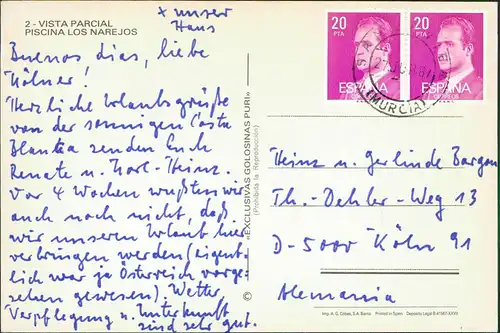 2 - VISTA PARCIAL
PISCINA LOS NAREJOS
x unser
Haus
Buenos dias, liebe
Kölner!
Herzliche Urlaubsgrüße
von der sonnigen Costa
Blanca senden Euch
Renate u. Karl-Heinz.
Vor 4 Wochen wußten wir
auch noch nicht, daß
wir unseren Urlaub hier
verbringen werden (eigent-
lich war ja Österreich vorge-
sehen gewesen). Wetter,
Verpflegung u. Unterkunft
sind sehr gut.
«EXCLUSIVAS GOLOSINAS PURI»
(Prohibida la Reproducción)
©
20
PTA
ESPAÑA
CORREOS
20
PTA
ESPAÑA
CORREOS
(MURCIA)
Heinz u. Gerlinde Bargon
Th.-Dehler-Weg 13
D-5000 Köln 91
Alemania
Imp. A. G. Catsas, S.A. Barna Printed in Spain Depósito Legal B 41563-XXVII